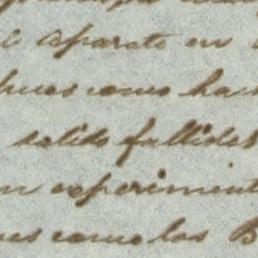 aparato en
pues como hac
salido fallidas
experiment
como los B